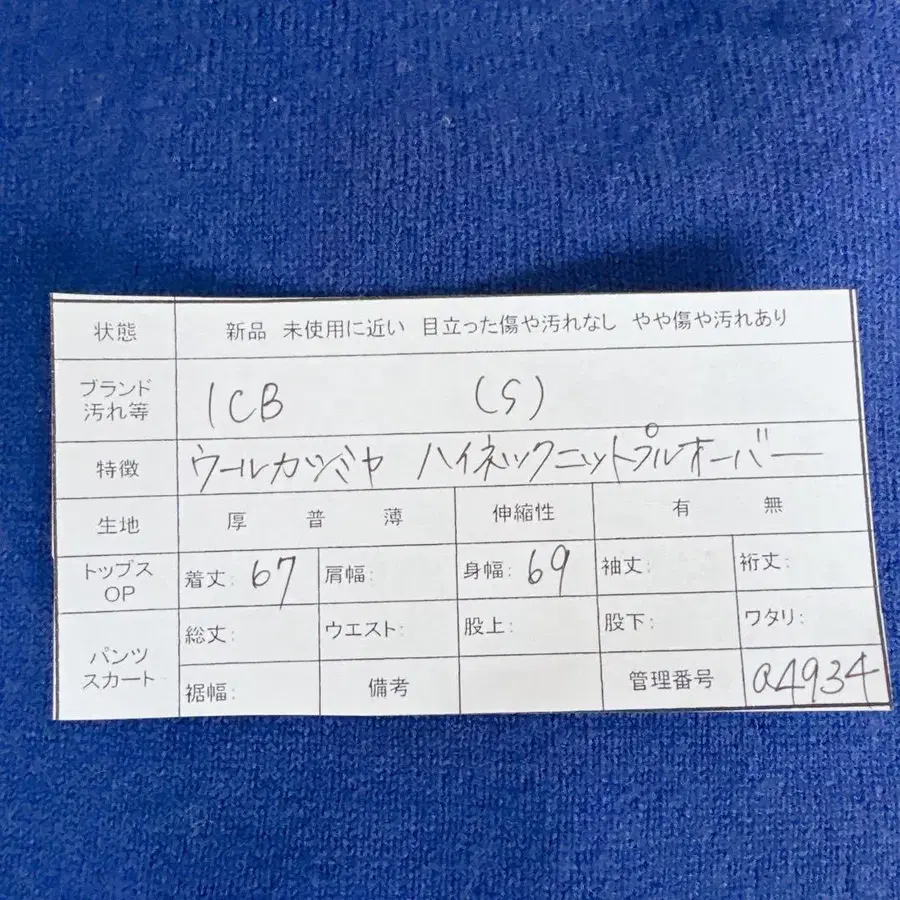 状態 新品 未使用に近い 目立った傷や汚れなし やや傷や汚れあり
ブランド
汚れ等 ICB (S)
特徴 ウールカシミヤ ハイネックニットプルオーバー
生地 厚 普 薄 伸縮性 有 無
トップス
OP 着丈: 67 肩幅: 身幅: 69 袖丈: 裄丈:
パンツ
スカート 総丈: ウエスト: 股上: 股下: ワタリ:
裾幅: 備考 管理番号 Q4934